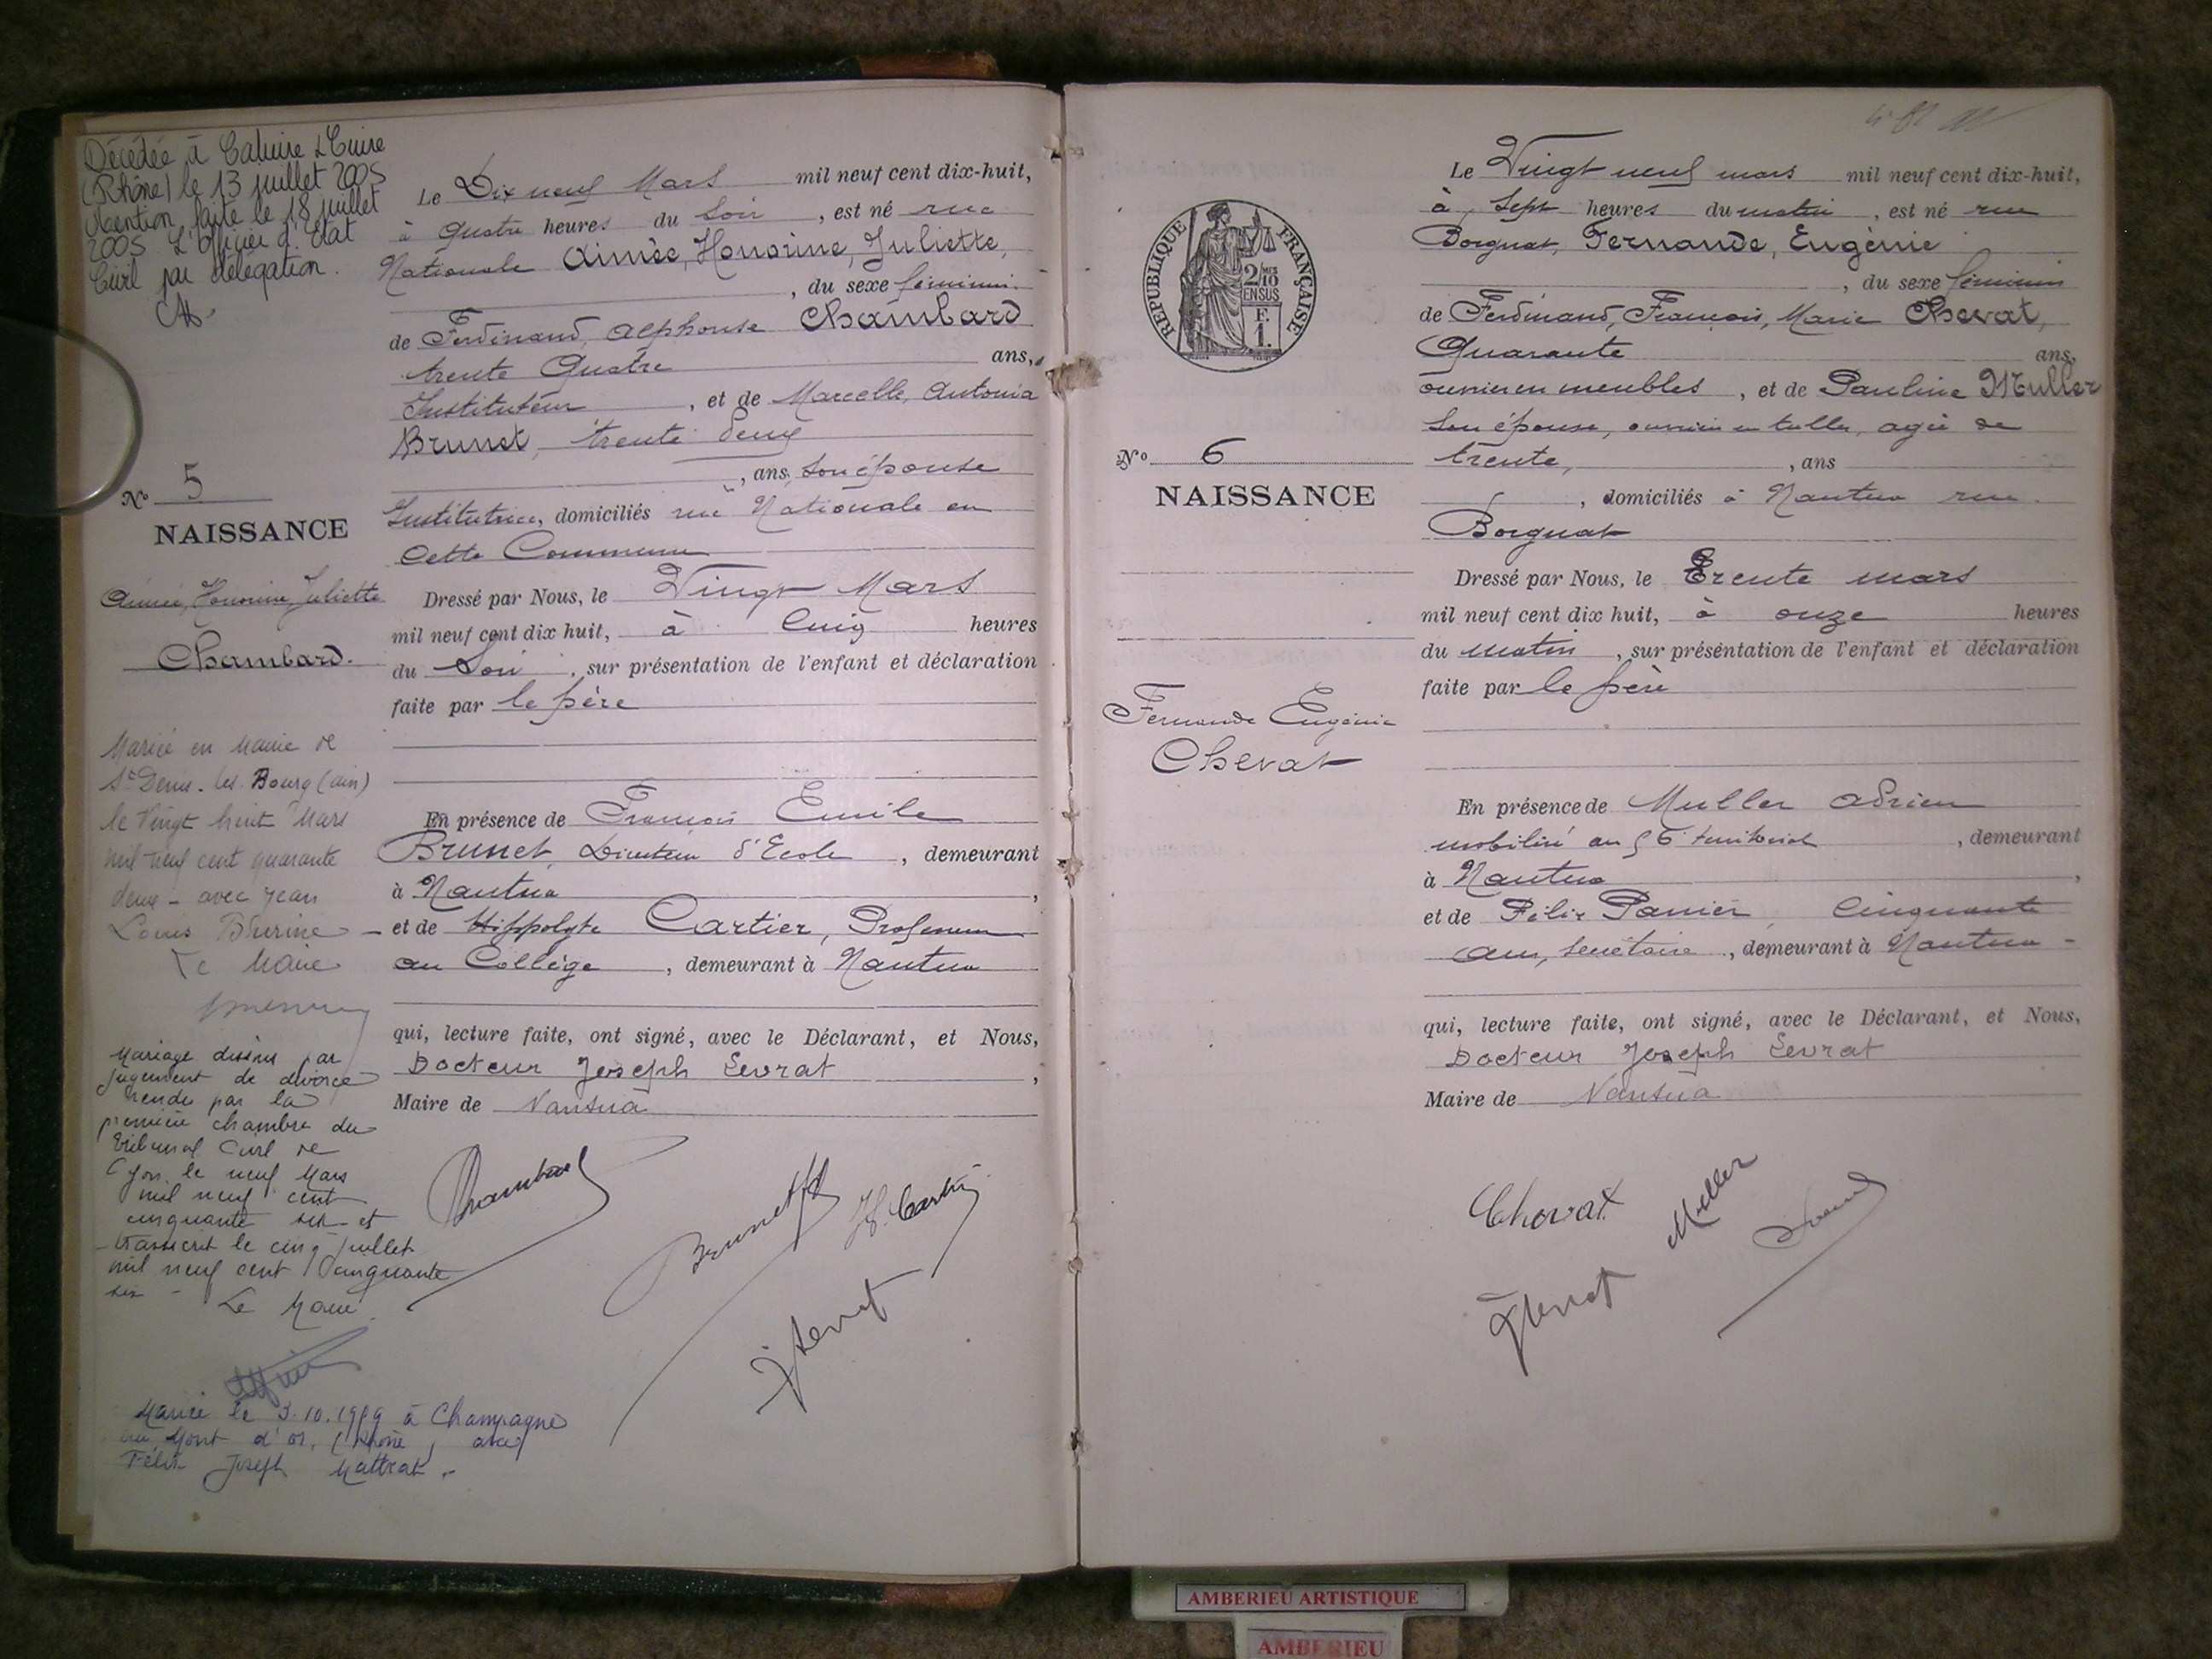 Décédée à Caluire & Cuire
(Rhône) le 13 juillet 2005
Mention faite le 18 juillet
2005 L'Officier d'Etat
Civil par délégation.
N° 5
NAISSANCE
Aimée, Honorine, Juliette
Chambard.
Mariée en Mairie de
St Denis-les-Bourg (ain)
le Vingt huit Mars
mil neuf cent quarante
deux - avec Jean
Louis
Le Maire
Mariage dissous par
jugement de divorce
rendu par la
première chambre du
tribunal Civil de
Lyon le neuf Mars
mil neuf cent
cinquante six et
transcrit le cinq juillet
mil neuf cent cinquante
six - Le Maire
Mariée le 3.10.1989 à Champagne
au Mont d'or, (Rhône) avec
Félix Joseph Mattrat.
Le Dix neuf Mars mil neuf cent dix-huit,
à Quatre heures du Soir, est né rue
Nationale Aimée, Honorine, Juliette,
, du sexe féminin.
de Ferdinand, Alphonse Chambard
trente Quatre ans,
Instituteur, et de Marcelle, Antonia
Brunet, trente deux
, ans, son épouse
Institutrice, domiciliés rue Nationale en
cette Commune
Dressé par Nous, le Vingt Mars
mil neuf cent dix huit, à Cinq heures
du Soir, sur présentation de l'enfant et déclaration
faite par le père
En présence de François Emile
Brunet, Directeur d'Ecole, demeurant
à Nantua,
et de Hippolyte Cartier, Professeur
au Collège, demeurant à Nantua
qui, lecture faite, ont signé, avec le Déclarant, et Nous,
Docteur Joseph Levrat,
Maire de Nantua
Chambard
Brunet
H. Cartier
J Levrat
REPUBLIQUE FRANÇAISE
2/10 MES
EN SUS
F.
1.
N° 6
NAISSANCE
Fernande Eugénie
Chevat
Le Vingt neuf mars mil neuf cent dix-huit,
à Sept heures du matin, est né rue
Borguat, Fernande, Eugénie
, du sexe féminin
de Ferdinand, François, Marie Chevat,
Quarante ans,
ouvrier en meubles, et de Pauline Muller
son épouse, ouvrière en tulles, agée de
trente, , ans
, domiciliés à Nantua rue
Borguat
Dressé par Nous, le Trente mars
mil neuf cent dix huit, à onze heures
du matin, sur présentation de l'enfant et déclaration
faite par le père
En présence de Muller Adrien
mobilisé au 56e territorial, demeurant
à Nantua,
et de Félix Panier, Cinquante
ans, secrétaire, demeurant à Nantua -
qui, lecture faite, ont signé, avec le Déclarant, et Nous,
Docteur Joseph Levrat
Maire de Nantua
Chevat
Muller
J Levrat
AMBERIEU ARTISTIQUE
AMBERIEU